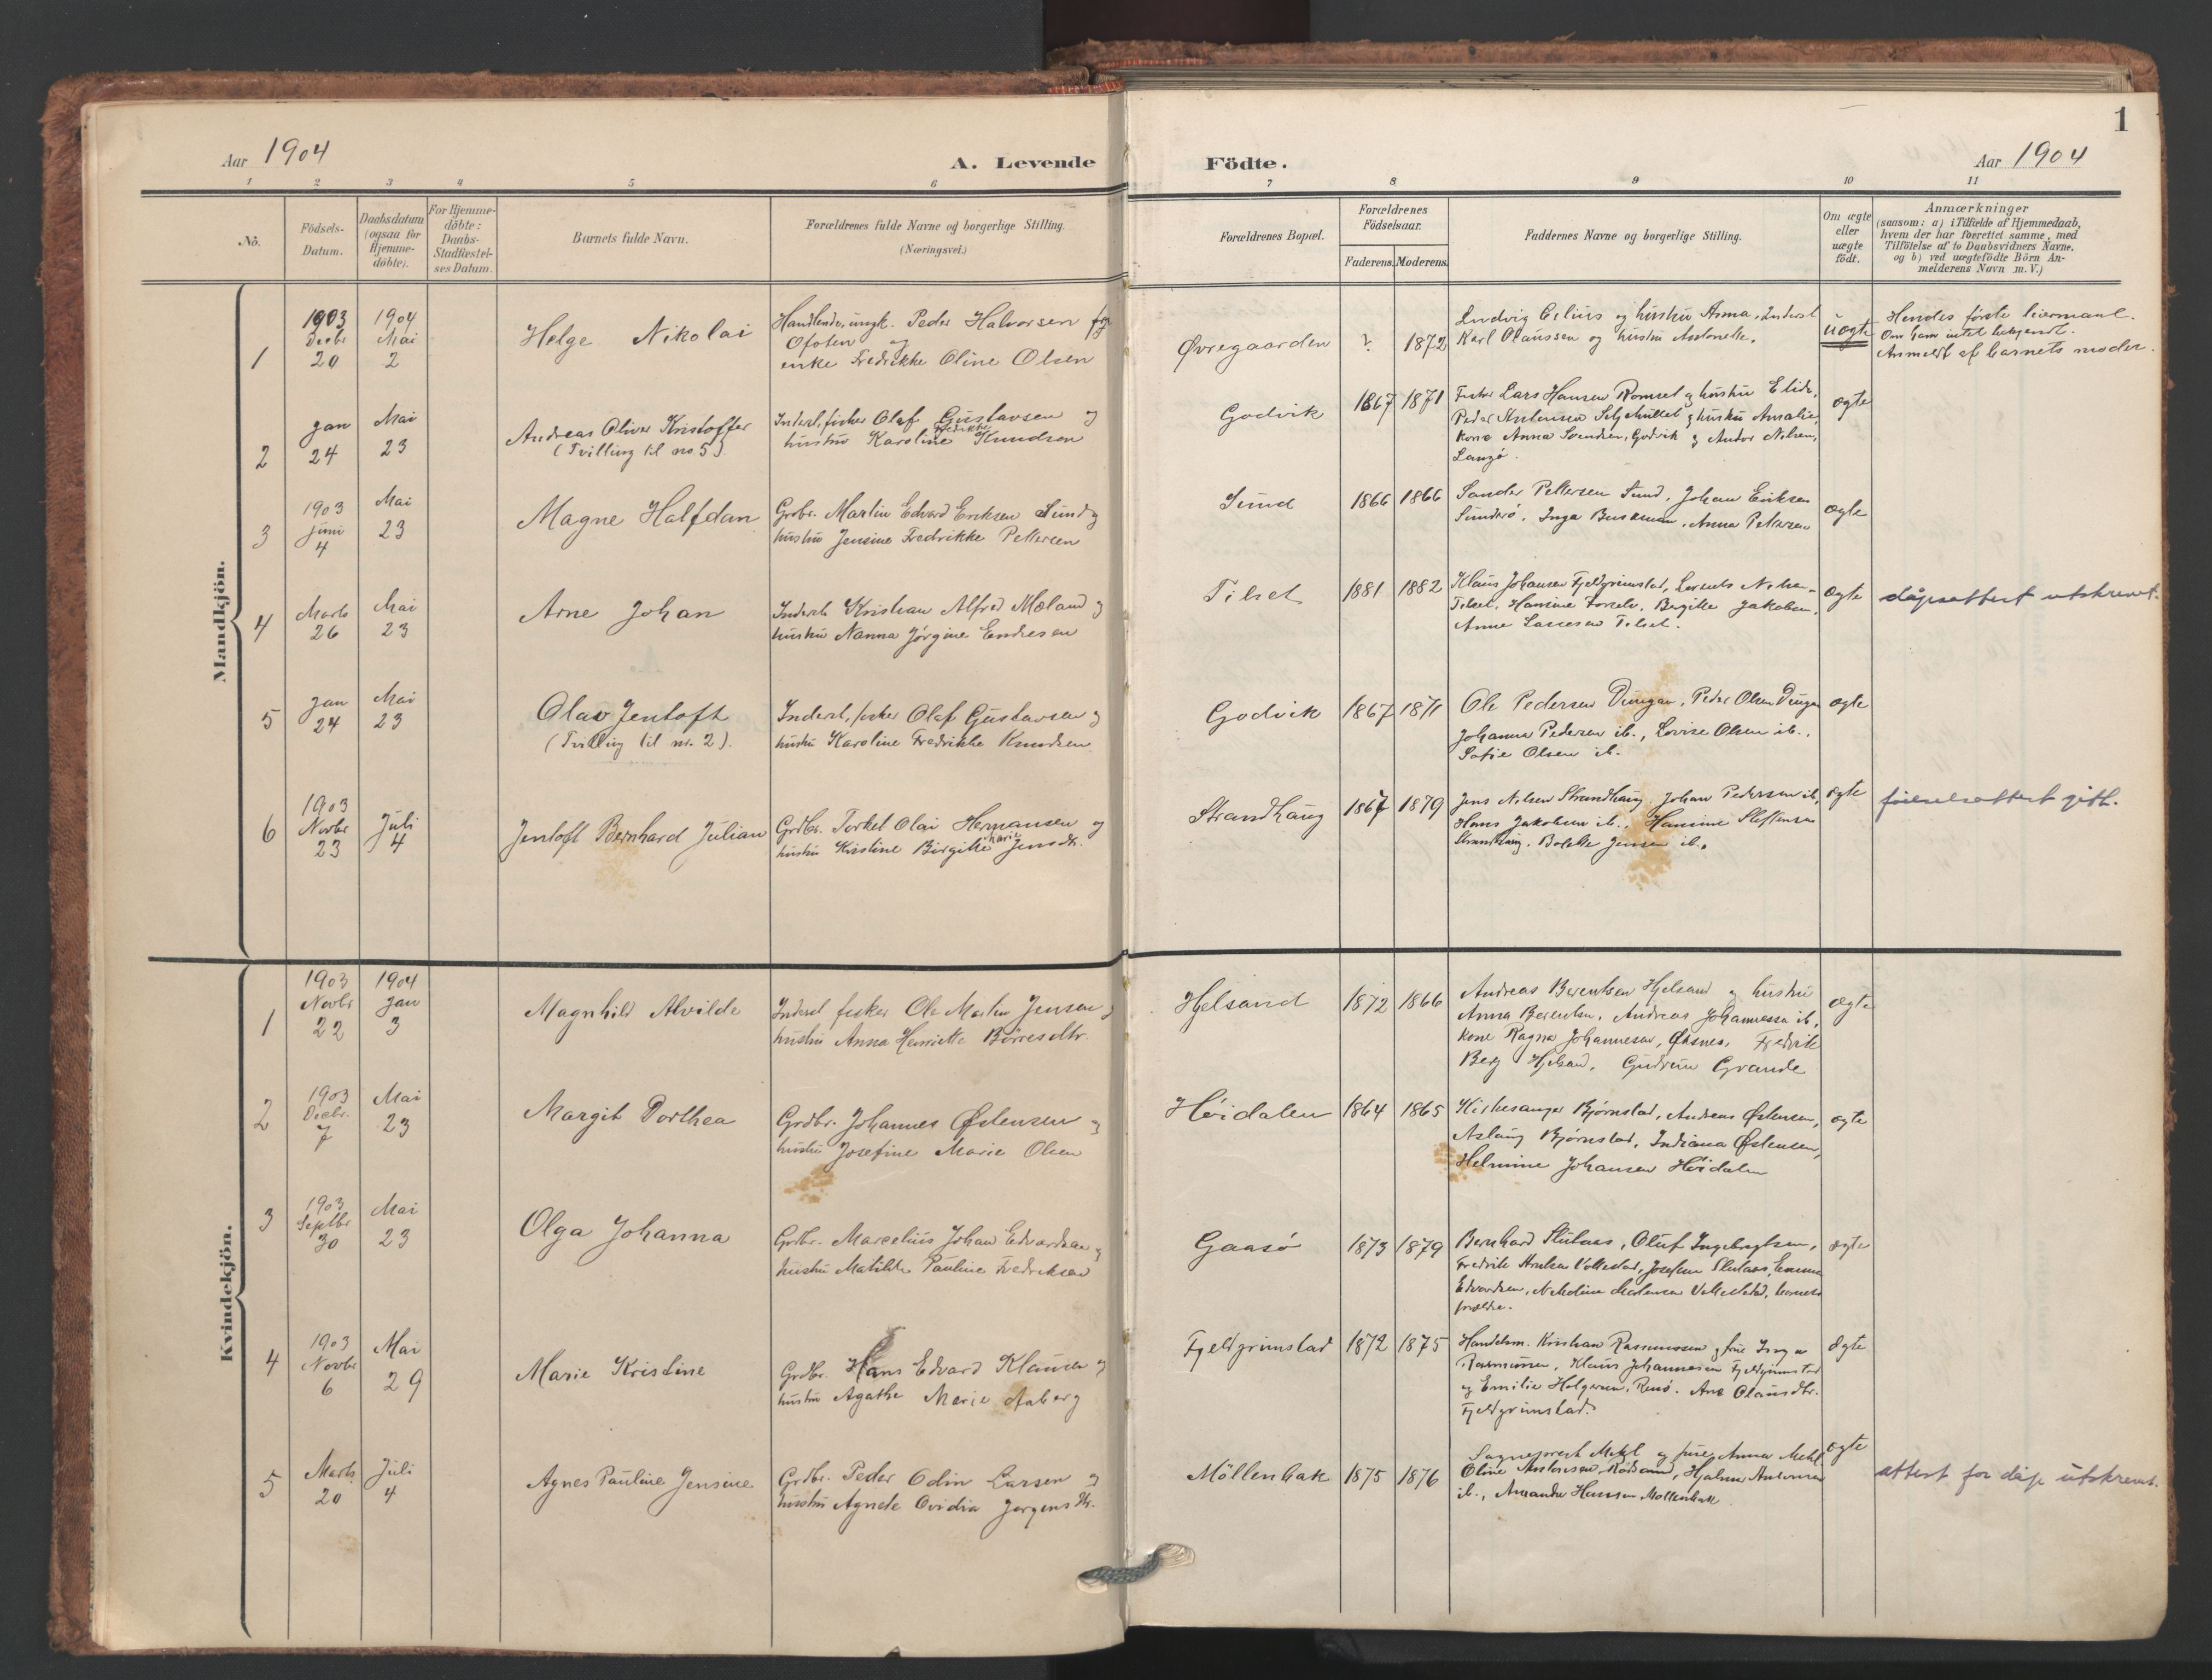 1
Aar 1904
A. Levende Födte.
Aar 1904
1 2 3 4 5 6 7 8 9 10 11
Nò.
Födsels-
Datum.
Daabsdatum
(ogsaa for
Hjemme-
döbte).
For Hjemme-
döbte:
Daabs-
Stadfæstel-
ses Datum.
Barnets fulde Navn.
Forældrenes fulde Navne og borgerlige Stilling.
(Næringsvei.)
Forældrenes Bopæl.
Forældrenes
Födselsaar.
Faderens. Moderens.
Faddernes Navne og borgerlige Stilling.
Om ægte
eller
uægte
födt.
Anmærkninger
(saasom: a) i Tilfælde af Hjemmedaab,
hvem der har forrettet samme, med
Tilföielse af to Daabsvidners Navne,
og b) ved uægtefödte Börn An-
melderens Navn m. V.)
Mandkjön.
1
1903
Decbr
20
1904
Mai
2
Helge Nikolai
Handlende, ungk. Peder Halvorsen
Ofoten og
enke Fredrikke Oline Olsen
Øvregaarden
? 1872
Ludvig og hustru Anna, Inderst
Karl Olaussen og hustru
uægte
Hendes første leiermaal.
Om ham intet bekjendt.
Anmeldt af barnets moder.
2
Jan
24
Mai
23
Andreas Oliver Kristoffer
(Tvilling til no 5)
Inderst, fisker Olaf Gustavsen og
hustru Karoline Fredrikke Knudsen
Godvik
1867 1871
Lars Hansen og hustru
Peder og hustru Amalie,
kone Anna Svendsen, Godvik og Andor Nilsen,
Langö.
ægte
3
1903
Juni
4
Mai
23
Magne Halfdan
Grdbr. Martin Edvard Eriksen Sund og
hustru Jensine Fredrikke Pettersen
Sund
1866 1866
Sander Pettersen Sund, Johan Eriksen
Sunderö, Inga, Anna Pettersen
ægte
4
Marts
26
Mai
23
Arne Johan
Inderst Kristian Alfred Mæland og
hustru Nanna Jörgine Endresen
Tilset
1881 1882
Klaus Johansen Fjeldgrimstad,
Tilset, Hansine, Bergitte Jakobsen,
Anne Larsen Tilset.
ægte
dåpsattest utskrevet.
5
Jan
24
Mai
23
Olav Jentoft
(Tvilling til nr. 2).
Inderst, fisker Olaf Gustavsen og
hustru Karoline Fredrikke Knudsen
Godvik
1867 1871
Ole Pedersen, Peder Olsen
Johanna Pedersen ib., Lovise Olsen ib.,
Sofie Olsen ib.
ægte
6
1903
Novbr
23
Juli
4
Jentoft Bernhard Julian
Grdbr. Torkel Olai Hermansen og
hustru Kristine Birgitte Marie Jensdtr.
Strandhaug
1867 1879
Jens Nilsen Strandhaug, Johan Pedersen ib,
Hans Jakobsen ib., Hansine Steffensen
Strandhaug, Bolette Jensen ib.
ægte
födselsattest gitt.
Kvindekjön.
1
1903
Novbr
22
1904
Jan
3
Magnhild Alvilde
Inderst fisker Ole Martin Jensen og
hustru Anna Henriette Börresdtr.
Hjelsand
1872 1866
Andreas Berentsen Hjelsand og hustru
Anna Berentsen, Andreas Johannessen ib,
kone Ragna Johannesen, Øksnes, Fredrik
Berg Hjelsand, Gudrun Grande
ægte
2
1903
Decbr.
7
Mai
23
Margit Dorthea
Grdbr. Johannes Østensen og
hustru Josefine Marie Olsen
Höidalen
1864 1865
Kirkesanger Björnstad, Andreas Østensen,
Aslaug Björnstad, Indiana Østensen,
Helmine Johansen Höidalen
ægte
3
1903
Septbr
30
Mai
23
Olga Johanna
Grdbr. Marcelius Johan Edvardsen og
hustru Matilde Pauline Fredriksen
Gaasö
1873 1879
Bernhard, Oluf Ingebrigtsen,
Fredrik, Emma
Edvardsen, barnets
forældre.
ægte
4
1903
Novbr
6
Mai
29
Marie Kristine
Grdbr. Hans Edvard Klausen og
hustru Agathe Marie Aaberg
Fjeldgrimstad
1872 1875
Handelsm. Kristian Rasmussen og frue Inga
Rasmussen, Klaus Johannesen Fjeldgrimstad
og Emilie Holgersen, Renö. Ane Olausdtr.
Fjeldgrimstad.
ægte
5
Marts
20
Juli
4
Agnes Pauline Jensine
Grdbr. Peder Odin Larsen og
hustru Agnete Ovidia Jörgensdtr.
Möllenbak
1875 1876
Sogneprest Mehl og frue Anna Mehl
Oline Antonsen, Hjalmar Antonsen
ib., Amanda Hansen Möllenbak
ægte
attest for dåp utskrevet.